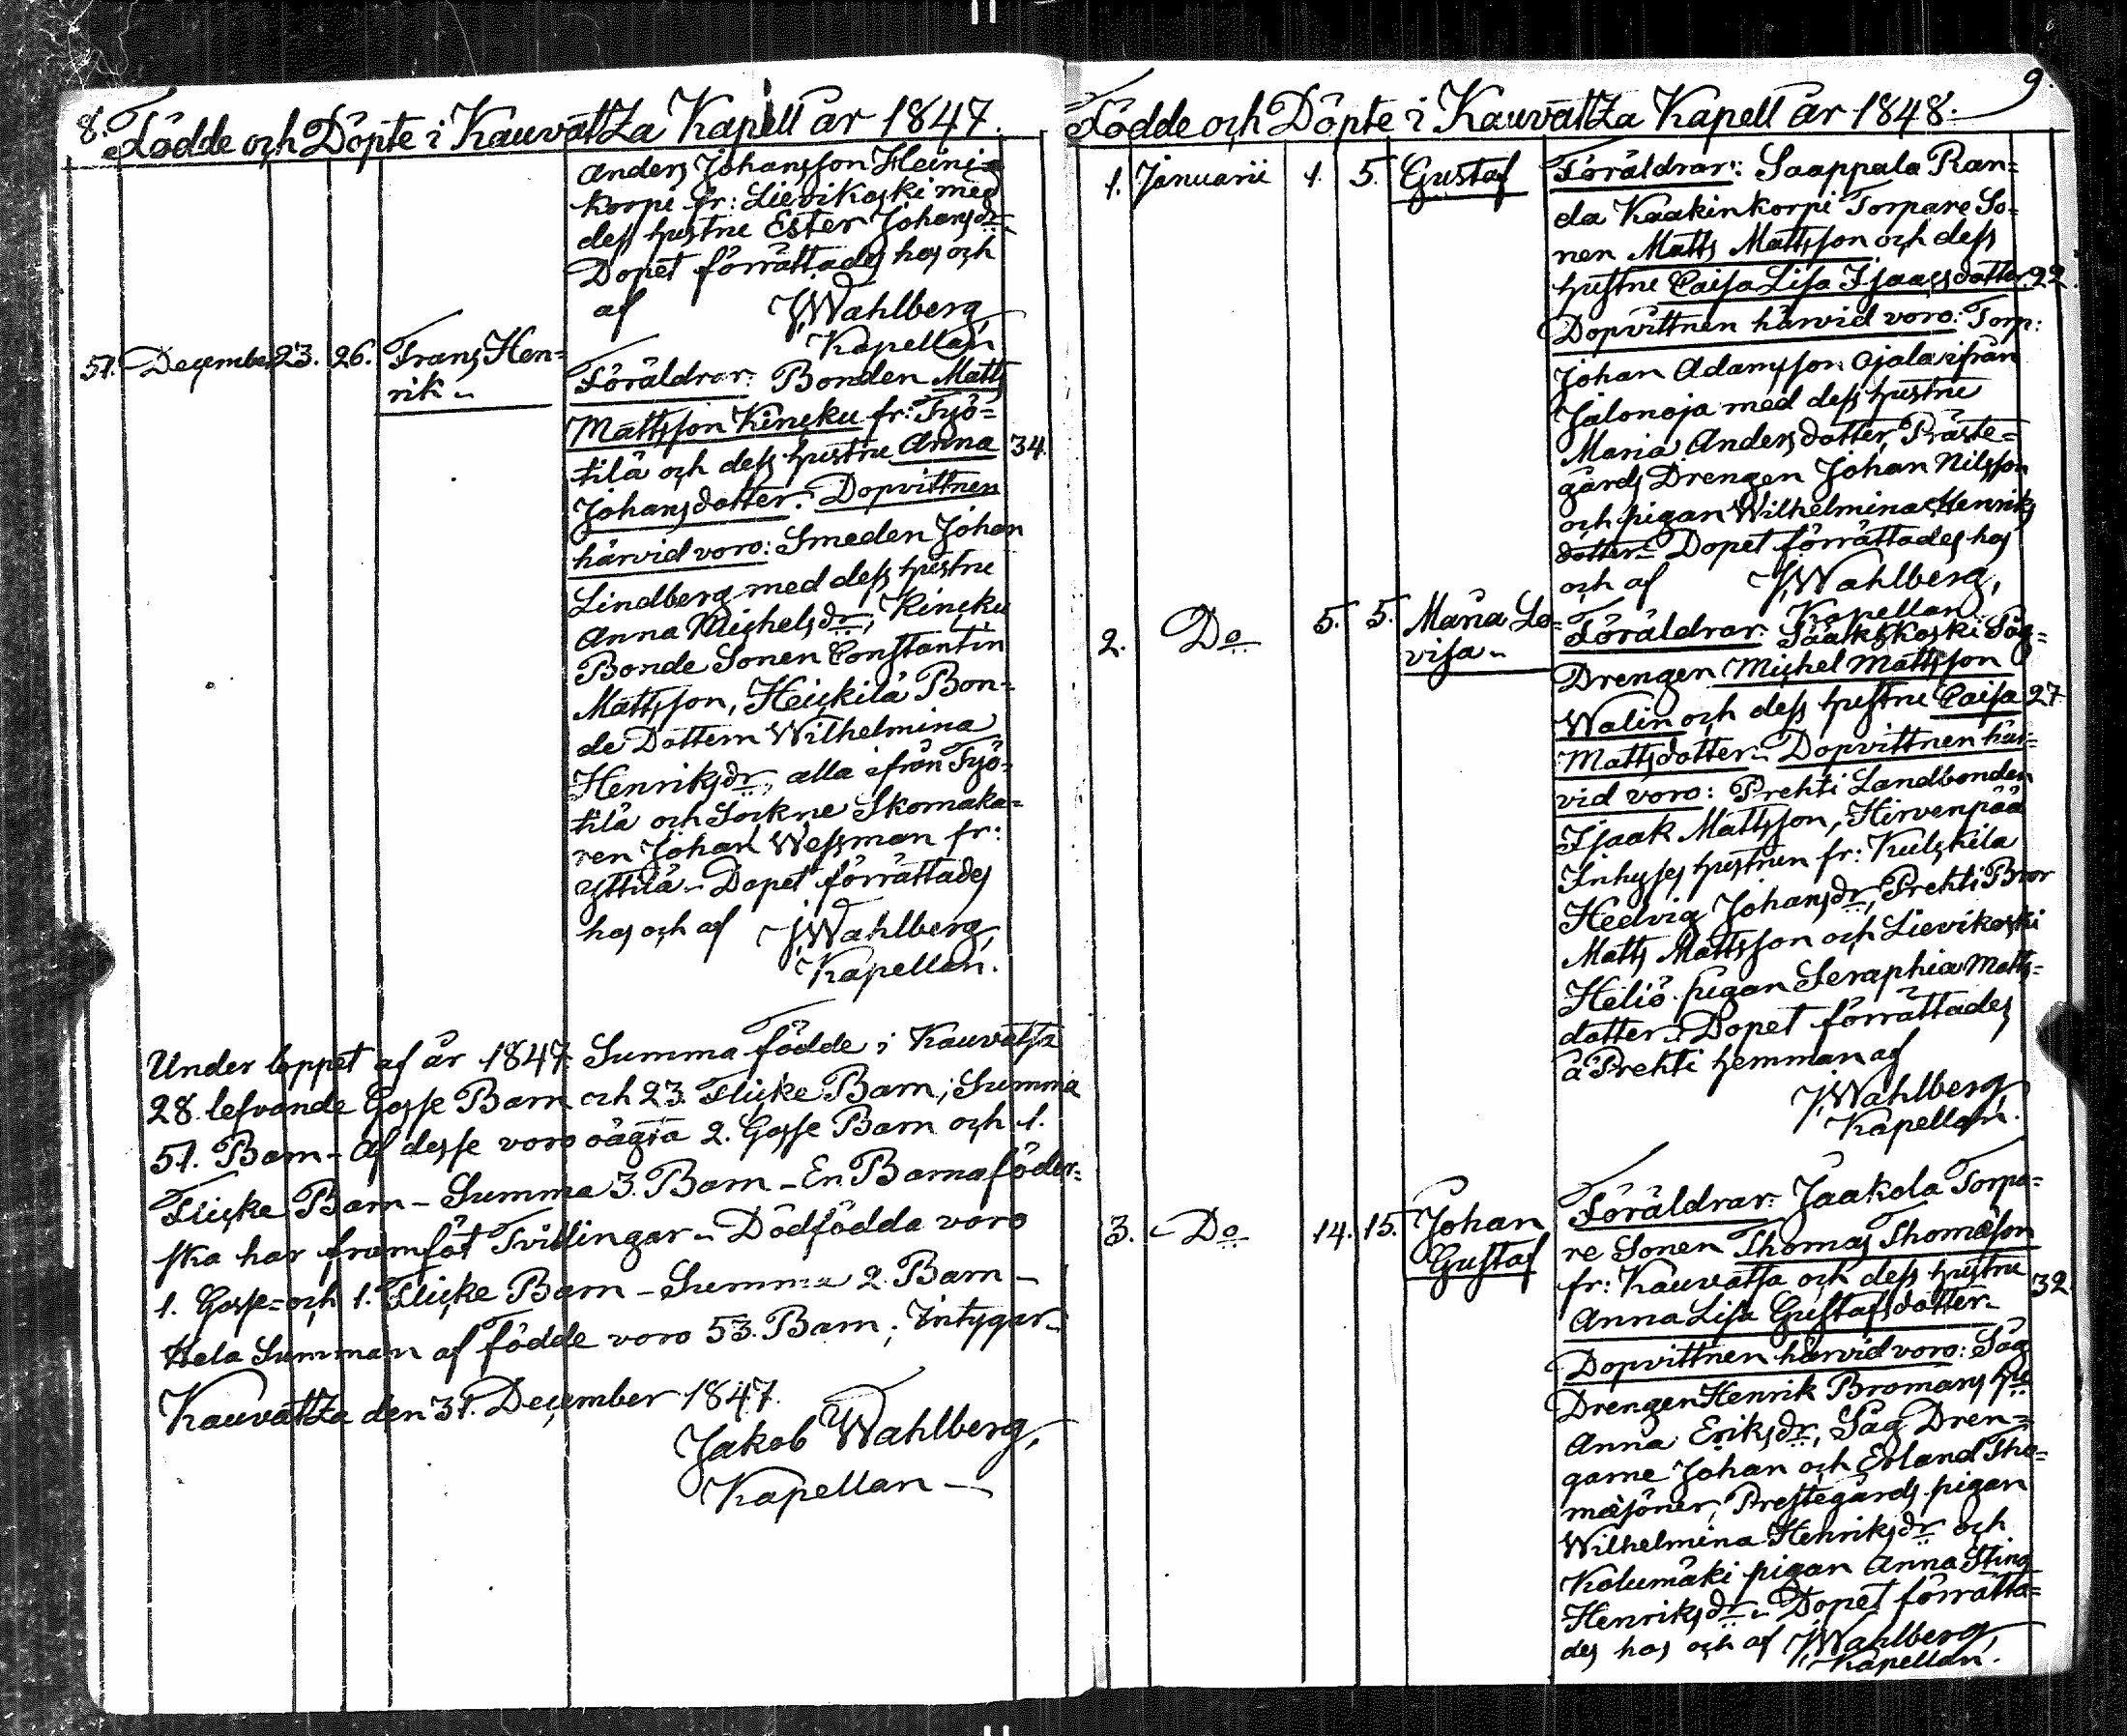 8. Födde och Döpte i Kauvatza Kapell år 1847.
Anders Johansson Heini=
korpi fr: Lievikoski med
dess hustru Ester Johansdr
Dopet förrättades hos och
af J. Wahlberg,
Kapellan
51. December 23. 26. Frans Hen=
rik
Föräldrar: Bonden Matts
Mattsson Kincku fr: Työ=
tilä och dess hustru Anna 34.
Johansdotter. Dopvittnen
härvid voro: Smeden Johan
Lindberg med dess hustru
Anna Michelsdr, Kincku
Bonde Sonen Constantin
Mattsson, Heickilä Bon=
de Dottern Wilhelmina
Henriksdr, alla ifrån Työ=
tilä och Sockne Skomaka=
ren Johan Wessman fr:
Yttilä. Dopet förrättades
hos och af J. Wahlberg,
Kapellan.
Under loppet af år 1847. Summa födde i Kauvatsa
28. lefvande Gosse Barn och 23. Flicke Barn; Summa
51. Barn - Af desse voro oägta 2. Gosse Barn och 1.
Flicke Barn - Summa 3. Barn - En Barnaföder=
ska har framföt Tvillingar - Dödfödda voro
1. Gosse= och 1. Flicke Barn - Summa 2. Barn -
Hela Summan af födde voro 53. Barn; Intygar -
Kauvatza den 31. December 1847.
Jakob Wahlberg,
Kapellan -
9.
Födde och Döpte i Kauvatza Kapell år 1848.
1. Januarii 1. 5. Gustaf
Föräldrar: Saappala Ran=
da Kaakinkorpi Torpare So=
nen Matts Mattsson och dess
hustru Caisa Lisa Isaacsdotter. 22.
Dopvittnen härvid voro: Torp:
Johan Adamsson Ojala ifrån
Jalonoja med dess hustru
Maria Andersdotter, Präste=
gårds Drengen Johan Nilsson
och pigan Wilhelmina Henriks
dotter - Dopet förrättades hos
och af J. Wahlberg,
Kapellan
2. Do 5. 5. Maria Lo=
visa
Föräldrar: Sääkskoski Såg=
Drengen Michel Mattsson
Walin och dess hustru Caisa 27
Mattsdotter. Dopvittnen här=
vid voro: Prehti Landbonden
Isaak Mattsson, Hirvenpää
Inhyses hustrun fr: Kulskila
Hedvig Johansdr, Prehti Bror
Matts Mattsson och Lievikoski
Heliö pigan Seraphia Matts=
dotter. Dopet förrättades
å Prehti hemman af
J. Wahlberg,
Kapellan.
3. Do 14. 15. Johan
Gustaf
Föräldrar: Jaakola Torpa=
re Sonen Thomas Thomæson
fr: Kauvatsa och dess hustru 32.
Anna Lisa Gustafsdotter
Dopvittnen härvid voro: Såg
Drengen Henrik Bromans hu
Anna Eriksdr, Såg Dren=
garne Johan och Erland Tho=
mæsöner, Prestegårds pigan
Wilhelmina Henriksdr och
Kolumäki pigan Anna Stina
Henriksdr. Dopet förrätta=
des hos och af J. Wahlberg,
Kapellan.